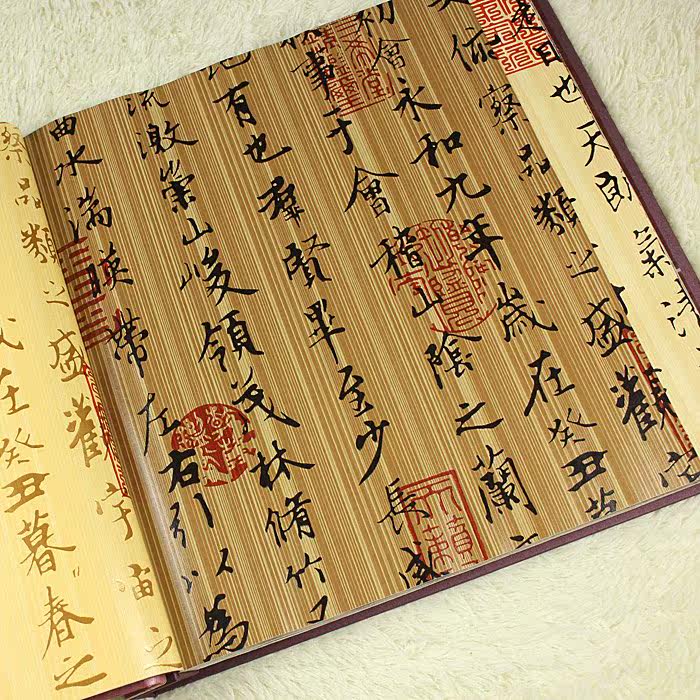 日也天朗氣清
俯察品類之盛觀宇
初會永和九年歲在癸丑
事于會稽山陰之蘭
地有也羣賢畢至少長咸
流激崇山峻領茂林脩竹
曲水湍暎帶左右引以為
察品類之盛觀宇宙之
在癸丑暮春之